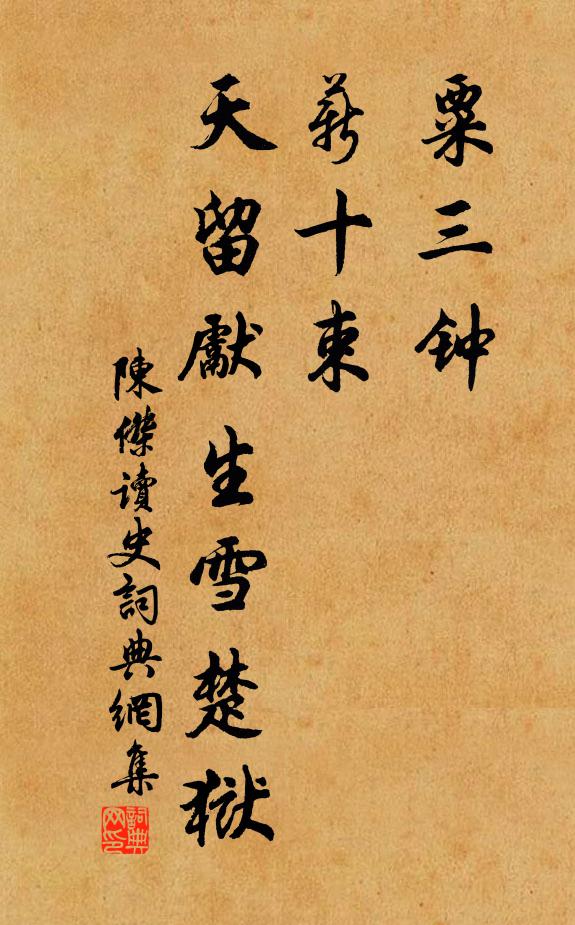 粟三钟
薪十束
天留獻生雪楚獄
陳傑讀史詞典網集
詞典
网印